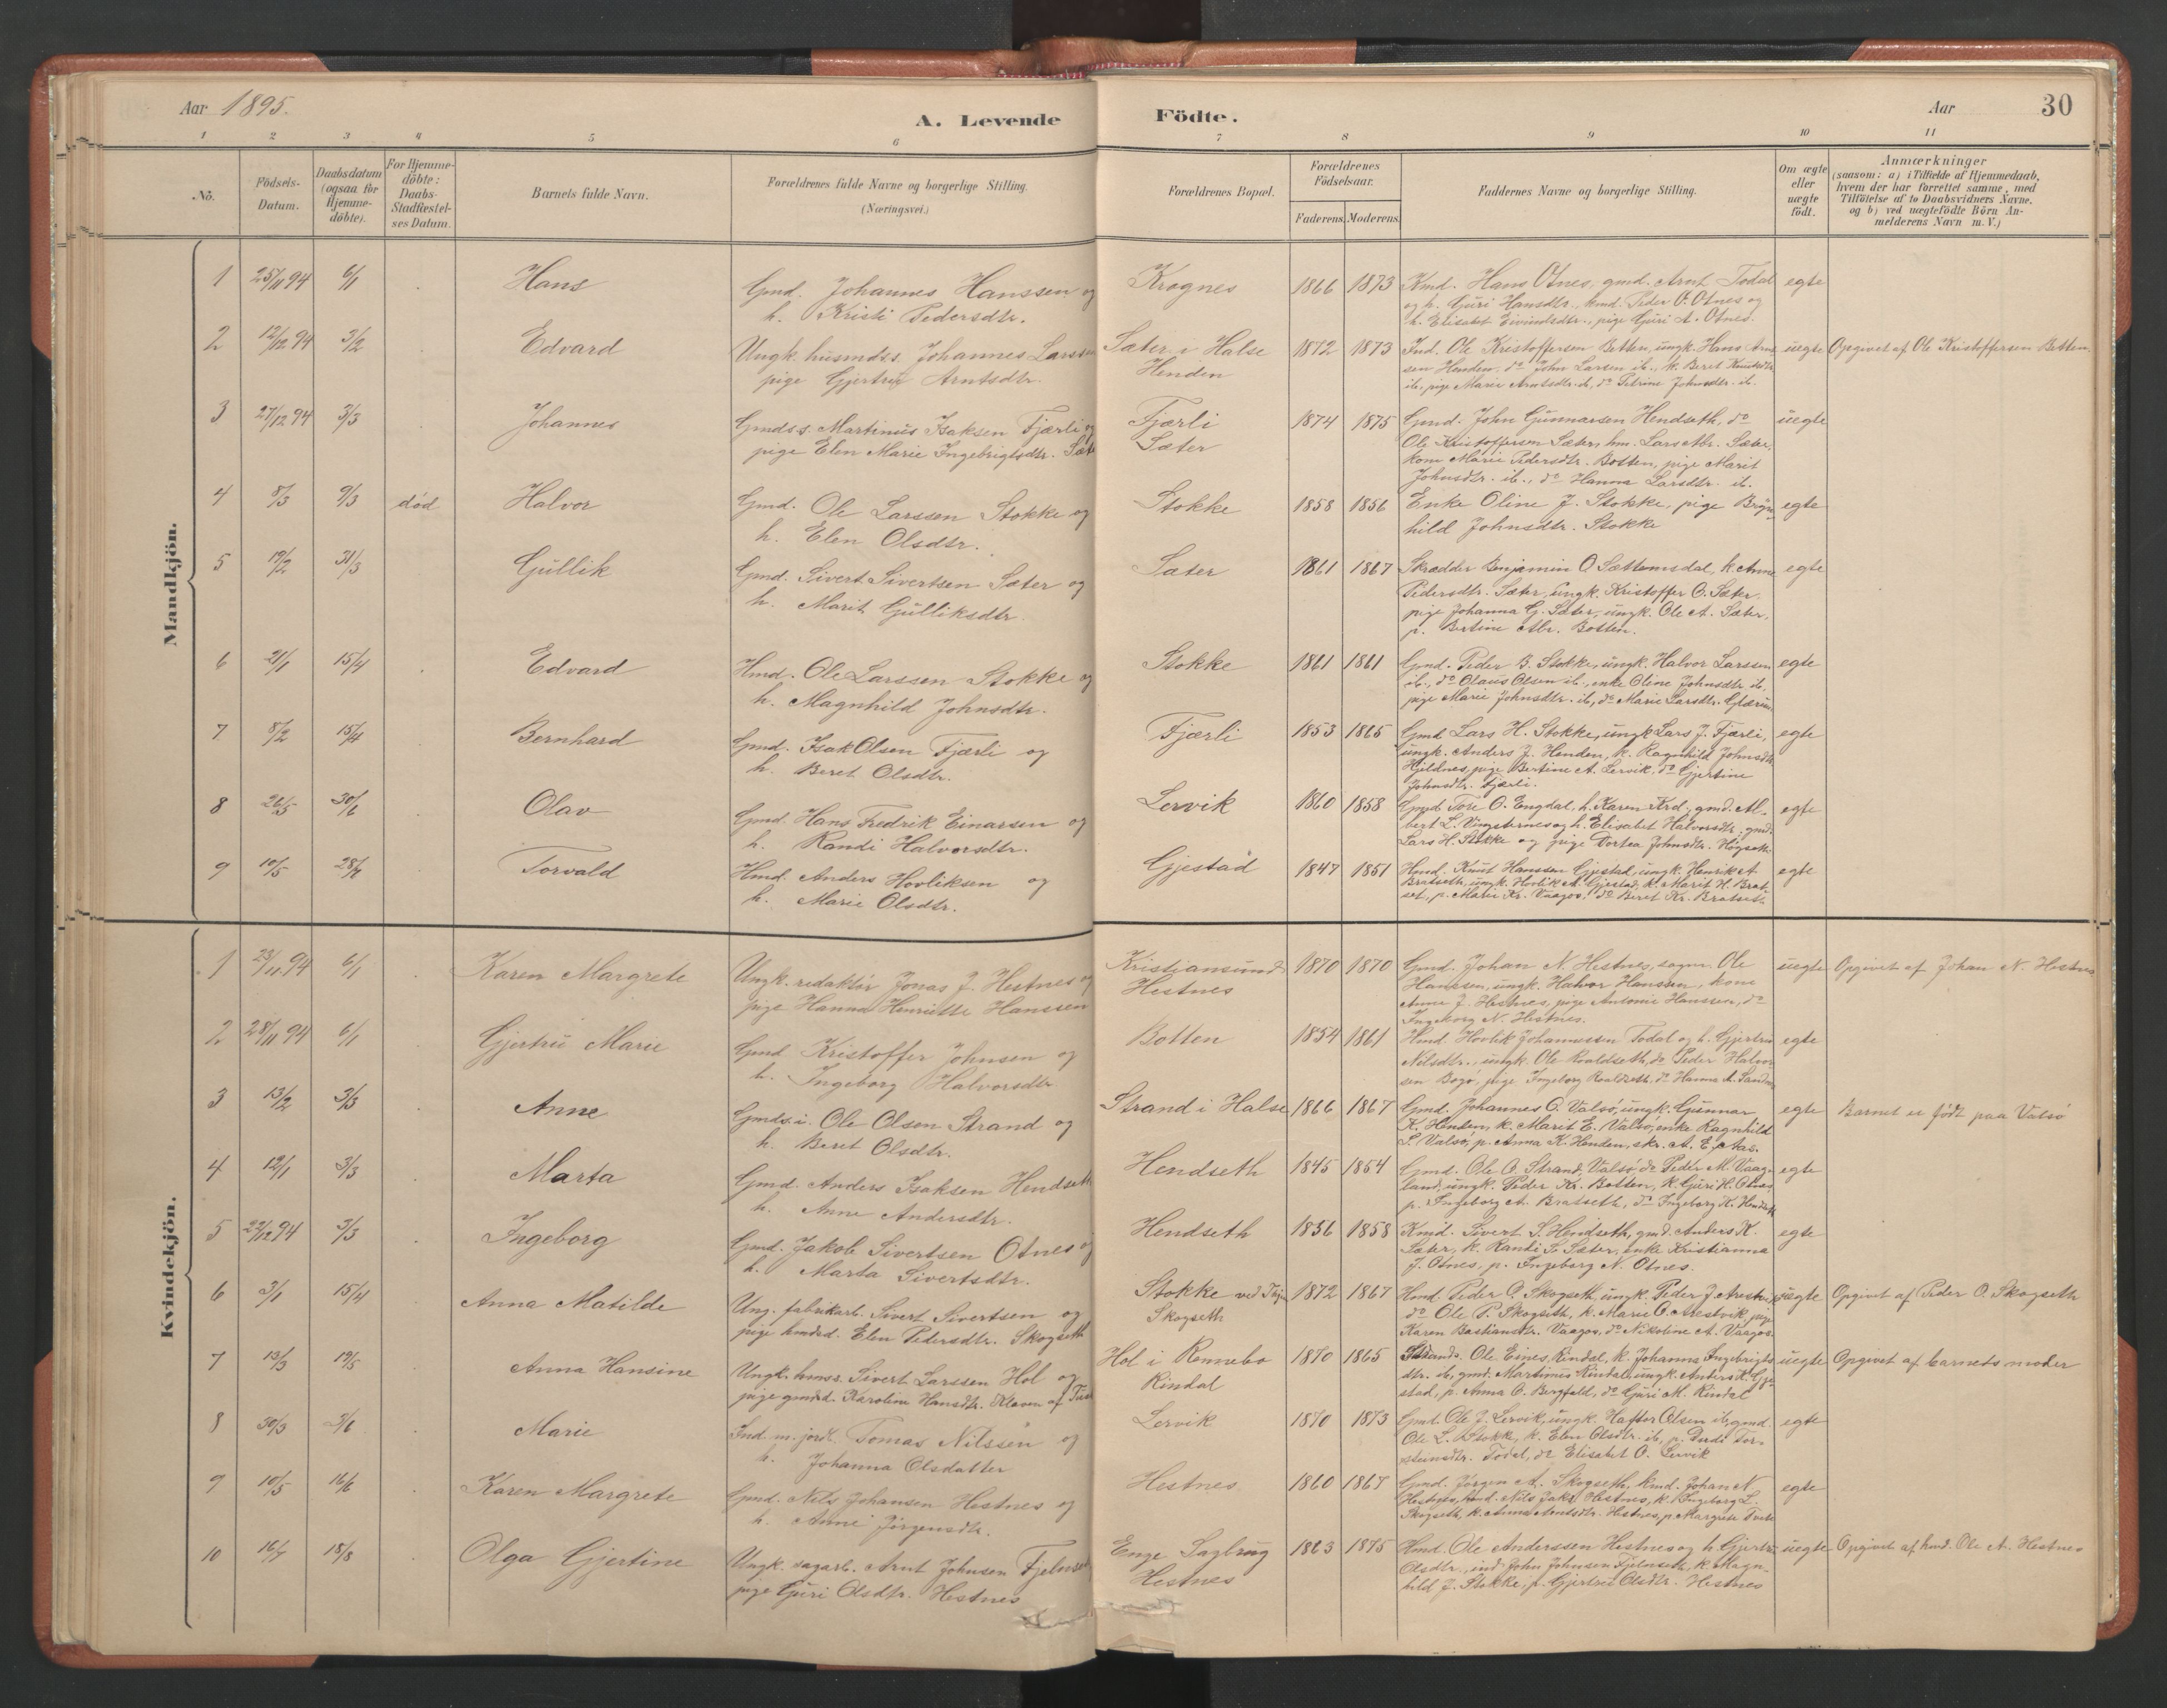 Aar 1895.
A. Levende Födte.
Aar 30
1 2 3 4 5 6 7 8 9 10 11
No.
Födsels-Datum.
Daabsdatum (ogsaa for Hjemmedöbte).
For Hjemmedöbte: Daabs-Stadfæstelses Datum.
Barnets fulde Navn.
Forældrenes fulde Navne og borgerlige Stilling.
(Næringsvei.)
Forældrenes Bopæl.
Forældrenes Födselsaar.
Faderens. Moderens.
Faddernes Navne og borgerlige Stilling.
Om ægte eller uægte födt.
Anmærkninger
(saasom: a) i Tilfælde af Hjemmedaab, hvem der har forrettet samme, med Tilföielse af to Daabsvidners Navne, og b) ved uægtefödte Börn Anmelderens Navn m. V.)
Mandkjön.
1 25/11 94 6/1 Hans
Gmd. Johannes Hanssen og
h. Kristi Pedersdtr.
Krognes 1866 1873
Kmd. Hans Otnes, gmd. Arnt Todal
og h. Guri Hansdtr., kmd. Peder O. Otnes og
h. Elisabet Eivindsdtr., pige Guri A. Otnes.
egte
2 12/12 94 3/2 Edvard
Ungk. husmds. Johannes Larssen
pige Gjertrü Arntsdtr.
Sæter i Halse
Henden
1872 1873
Ind. Ole Kristoffersen Botten, ungk. Hans Arnt
sen Henden, do John Larsen ib., k. Beret Knutsdtr
ib., pige Marie Arntsdtr. ib, do Petrine Johnsdtr. ib.
uegte Opgivet af Ole Kristoffersen Botten.
3 27/12 94 3/3 Johannes
Gmdss. Martinus Isaksen Fjærli og
pige Elen Marie Ingebrigtsdtr. Sæter
Fjærli
Sæter
1874 1875
Gmd. John Gunnarsen Hendseth, do
Ole Kristoffersen Sæter, hm. Lars Abr. Sæter,
kone Marie Pedersdtr. Botten, pige Marit
Johnsdtr. ib., do Hanna Larsdtr. ib.
uegte
4 8/3 9/3 död Halvor
Gmd. Ole Larssen Stokke og
h. Elen Olsdtr.
Stokke 1858 1856
Enke Oline J. Stokke, pige Bryn-
hild Johnsdtr. Stokke
egte
5 19/2 31/3 Gullik
Gmd. Sivert Sivertsen Sæter og
h. Marit Gulliksdtr.
Sæter 1861 1867
Skrædder Benjamin O. Sættemsdal, k. Anne
Pedersdtr. Sæter, ungk. Kristoffer O. Sæter,
pige Johanna G. Sæter, ungk. Ole A. Sæter,
p. Bertine Abr. Botten.
egte
6 21/1 15/4 Edvard
Hmd. Ole Larssen Stokke og
h. Magnhild Johnsdtr.
Stokke 1861 1861
Gmd. Peder B. Stokke, ungk. Halvor Larssen
ib., do Olaus Olsen ib., enke Oline Johnsdtr ib,
pige Marie Johnsdtr. ib, do Marie Larsdtr. Glærum
egte
7 8/2 15/4 Bernhard
Gmd. Isak Olsen Fjærli og
h. Beret Olsdtr.
Fjærli 1853 1865
Gmd Lars H. Stokke, ungk Lars J. Fjærli,
ungk. Anders J. Henden, k. Ragnhild Johnsdtr
Hjildnes, pige Bertine A. Lervik, do Gjertine
Johnsdtr. Fjærli.
egte
8 26/5 30/6 Olav
Gmd. Hans Fredrik Einarsen og
h. Randi Halvorsdtr.
Lervik 1860 1858
Gmd. Tore O. Engdal, h. Karen Krd., gmd. Al-
bert L. Vingsternes og h. Elisabet Halvorsdtr; gmd.
Lars H. Stokke og pige Dortea Johnsdtr. Högseth.
egte
9 10/5 28/7 Torvald
Hmd. Anders Hovliksen og
h. Marie Olsdtr.
Gjestad 1847 1851
Hmd. Knut Hanssen Gjestad, ungk. Henrik A
Bratseth, ungk. Hovlik A. Gjestad, k. Marit H. Brat-
set, p. Marie Kr. Vaagos, do Beret Kr. Bratset.
egte
Kvindekjön.
1 23/11 94 6/1 Karen Margrete
Ungk. redaktör Jonas J. Hestnes og
pige Hanna Henriette Hanssen
Kristiansund
Hestnes
1870 1870
Gmd. Johan N. Hestnes, sagm. Ole
Hanssen, ungk. Halvor Hanssen, kone
Anne J. Hestnes, pige Antonie Hanssen, do
Ingeborg N. Hestnes.
uegte Opgivet af Johan N. Hestnes
2 28/11 94 6/1 Gjertrü Marie
Gmd Kristoffer Johnsen og
h. Ingeborg Halvorsdtr
Botten 1854 1861
Hmd. Hovlik Johannessen Todal og h. Gjertrü
Nilsdtr., ungk. Ole Roaldseth, do Peder Halvor
sen Bogö, pige Ingeborg Roaldseth, do Hanna A. Sandnes
egte
3 13/2 3/3 Anne
Gmds. i. Ole Olsen Strand og
h. Beret Olsdtr.
Strand i Halse 1866 1867
Gmd. Johannes O. Valsö, ungk. Gunnar
K. Henden, k. Marit E. Valsö, enke Ragnhild
L. Valsö, p. Anna K. Henden, skr. A. E. Aas.
egte Barnet er född paa Valsö
4 12/1 3/3 Marta
Gmd. Anders Isaksen Hendseth
h. Anne Andersdtr.
Hendseth 1845 1854
Gmd. Ole O. Strand, Valsö, do Peder M. Vaag-
land, ungk. Peder Kr. Botten, k. Guri H. Otnes
p. Ingeborg A. Bratseth, do Ingeborg K. Hendseth
egte
5 22/12 94 3/3 Ingeborg
Gmd. Jakob Sivertsen Otnes og
h. Marta Sivertsdtr.
Hendseth 1856 1858
Kmd. Sivert S. Hendseth, gmd. Anders K.
Sæter, k. Randi S. Sæter, enke Kristianna
J. Otnes, p. Ingeborg N. Otnes.
egte
6 3/1 15/4 Anna Matilde
Ung. fabrikarb. Sivert Sivertsen og
pige hmdsd. Elen Pedersdtr. Skogseth
Stokke ved
Skogseth
1872 1867
Hmd. Peder O. Skogseth, ungk. Peder J. Arestv.,
do Ole P. Skogseth, k. Marie O. Arestvik, pige
Karen Bastiansdtr. Vaagos, do Nikoline A. Vaagos.
uegte Opgivet af Peder O. Skogseth
7 13/3 19/5 Anna Hansine
Ungk. hmss. Sivert Larssen Hol og
pige gmdsd. Karoline Hansdtr. Kleven af
Hol i
Rindal
1870 1865
Ole Eines, Rindal, k. Johanna Ingebrigts
dtr. ib, gmd. Martinus Rindal, ungk. Anders K. Gje-
stad, p. Anna O. Bergfald, do Guri M. Rindal
uegte Opgivet af barnets moder
8 30/3 3/6 Marie
Ind. m. jord. Tomas Nilssen og
h. Johanna Olsdatter
Lervik 1870 1873
Gmd. Ole J. Lervik, ungk. Haftor Olsen ib, gmd.
Ole L. Stokke, k. Elen Olsdtr. ib, p. Gurdi Tor-
steinsdtr. Todal, do Elisabet O. Lervik
egte
9 10/5 16/6 Karen Margrete
Gmd. Nils Johansen Hestnes og
h. Anne Jörgensdtr.
Hestnes 1860 1867
Gmd. Jörgen A. Skogseth, kmd. Johan N
Hestnes, hmd. Nils Jaks. Hestnes, k. Ingeborg L.
Skogseth, k. Anna Arntsdtr. Hestnes, p. Margrete
egte
10 16/7 18/8 Olga Gjertine
Ungk. sagarb. Arnt Johnsen Fjelnset
pige Guri Olsdtr. Hestnes
Enge Sagbrug
Hestnes
1863 1875
Hmd. Ole Anderssen Hestnes og h. Gjertrü
Olsdtr., ind. John Johnsen Fjelnseth, k. Magn-
hild J. Stokke, p. Gjertrü Olsdtr. Hestnes
uegte Opgivet af hmd. Ole A. Hestnes